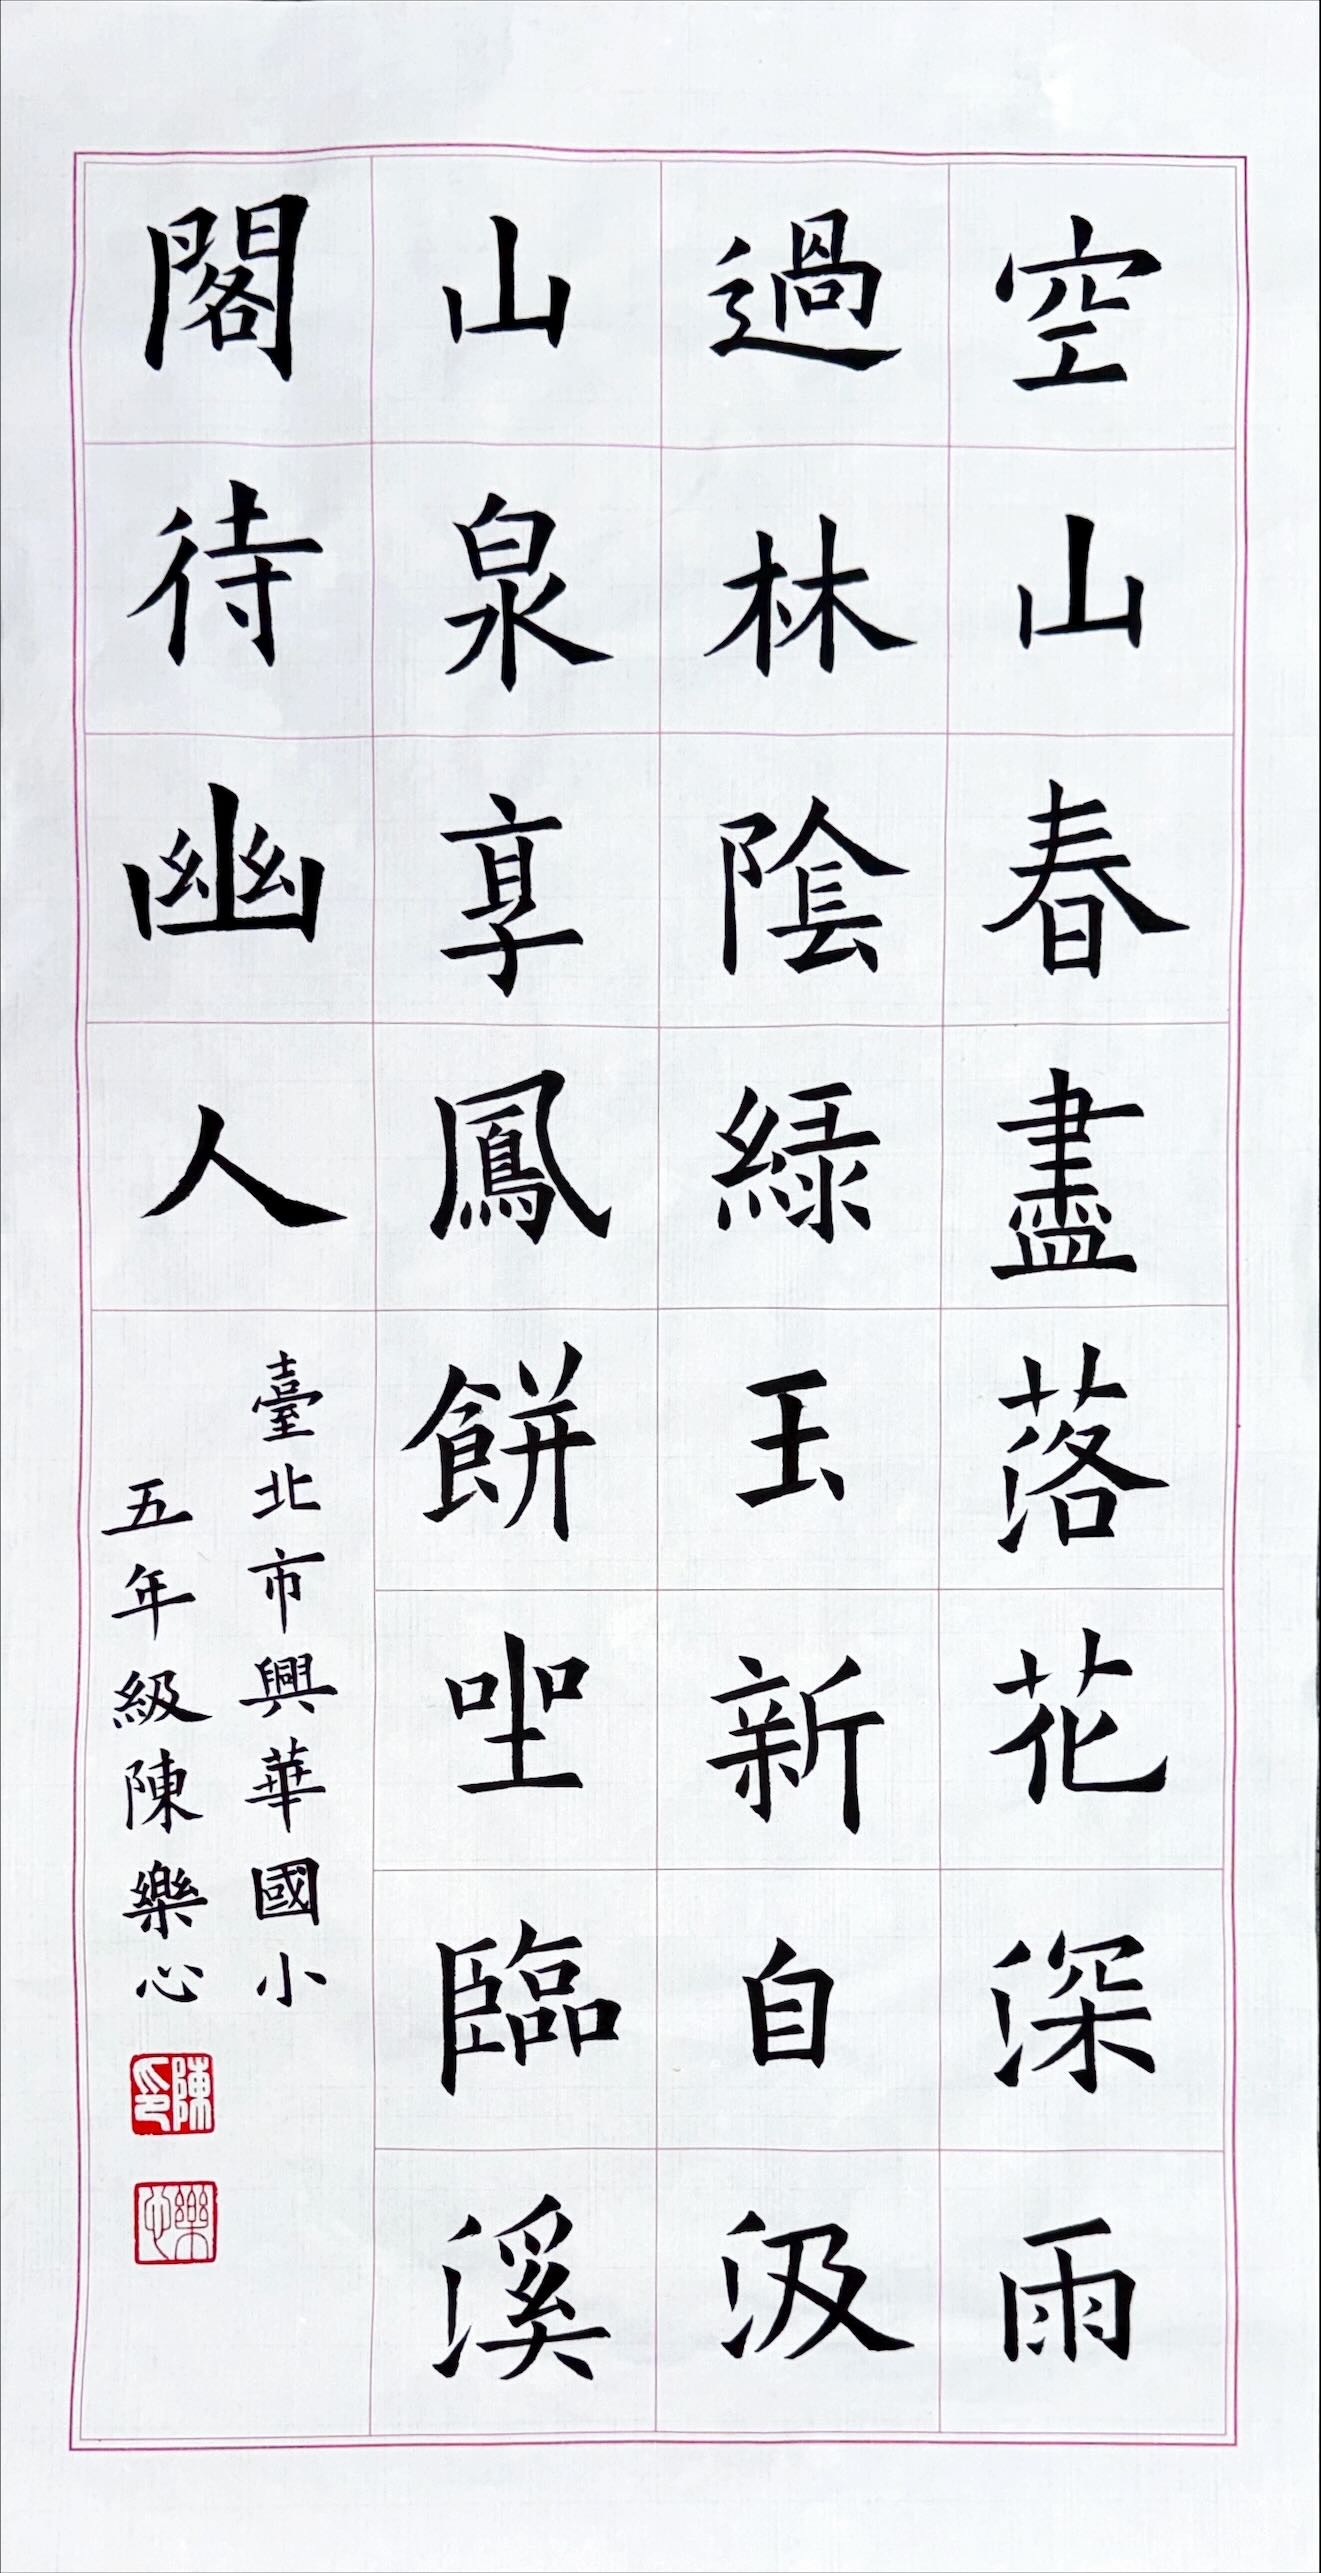 空山春盡落花深雨
過林陰綠玉新自汲
山泉享鳳餅坐臨溪
閣待幽人
臺北市興華國小
五年級陳樂心
陳印
樂心